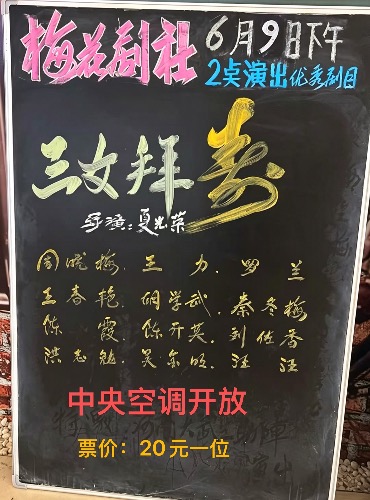 梅花剧社 6月9日下午
2点演出优秀剧目
三女拜寿
导演：夏光荣
周晓梅 王力 罗兰
王春艳 胡学武 秦冬梅
陈霞 陈开英 刘佐香
洪志勉 吴尔明 汪汪
中央空调开放
票价：20元一位